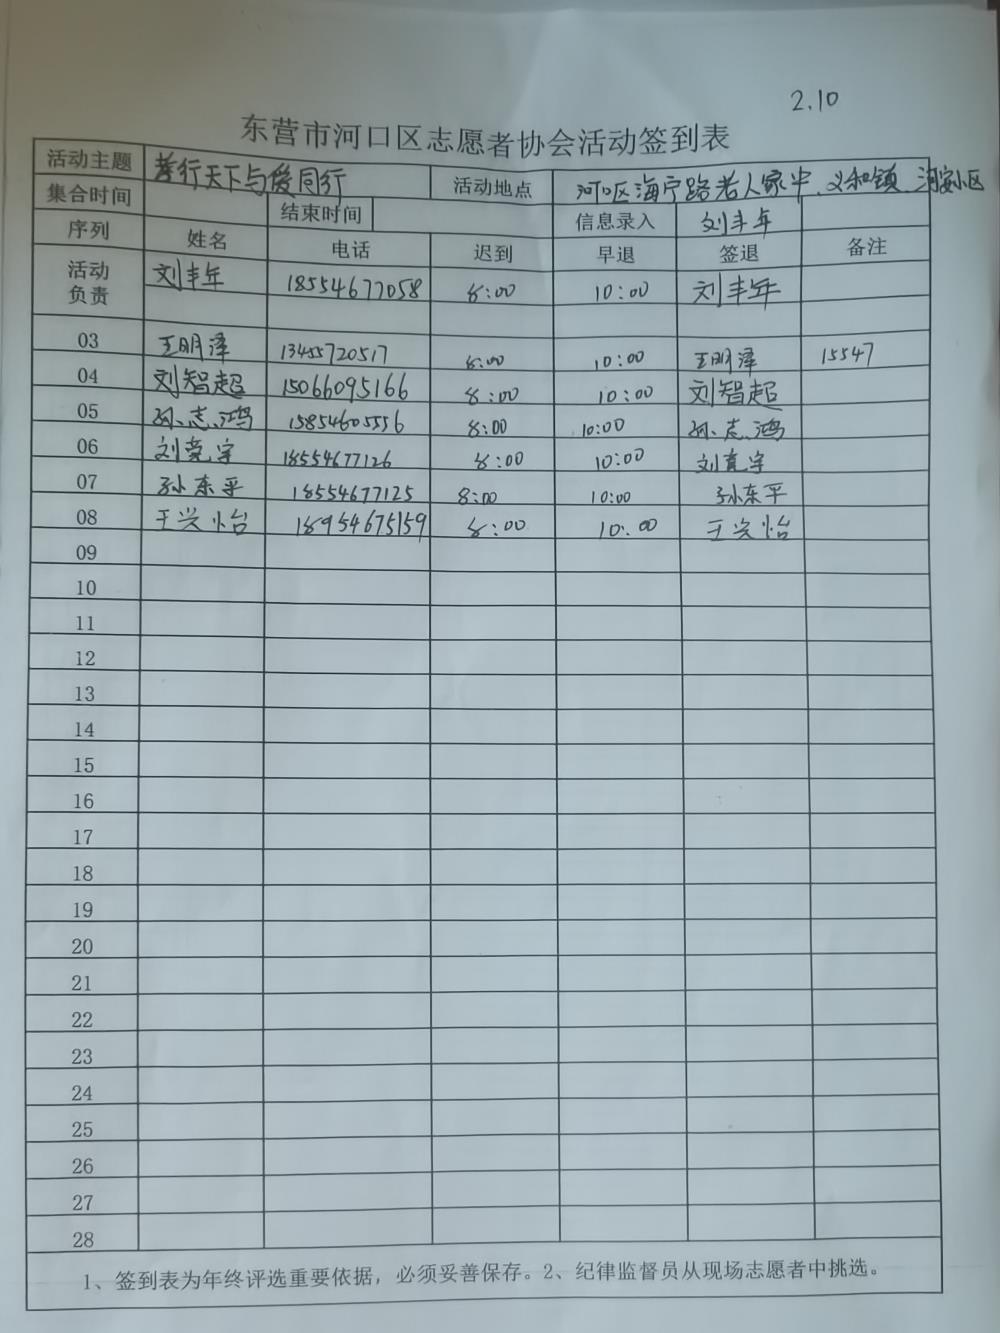 2.10
东营市河口区志愿者协会活动签到表
活动主题 孝行天下与爱同行 活动地点 河口区海宁路老人家中、义和镇、河安小区
集合时间 结束时间 信息录入 刘丰年
序列 姓名 电话 迟到 早退 签退 备注
活动负责 刘丰年 18554677058 8:00 10:00 刘丰年
03 王明泽 13455720517 8:00 10:00 王明泽 15547
04 刘智超 15066095166 8:00 10:00 刘智超
05 孙志鸿 15854605556 8:00 10:00 孙志鸿
06 刘竞宇 18554677126 8:00 10:00 刘竞宇
07 孙东平 18554677125 8:00 10:00 孙东平
08 王兴怡 18954675159 8:00 10:00 王兴怡
09
10
11
12
13
14
15
16
17
18
19
20
21
22
23
24
25
26
27
28
1、签到表为年终评选重要依据，必须妥善保存。2、纪律监督员从现场志愿者中挑选。